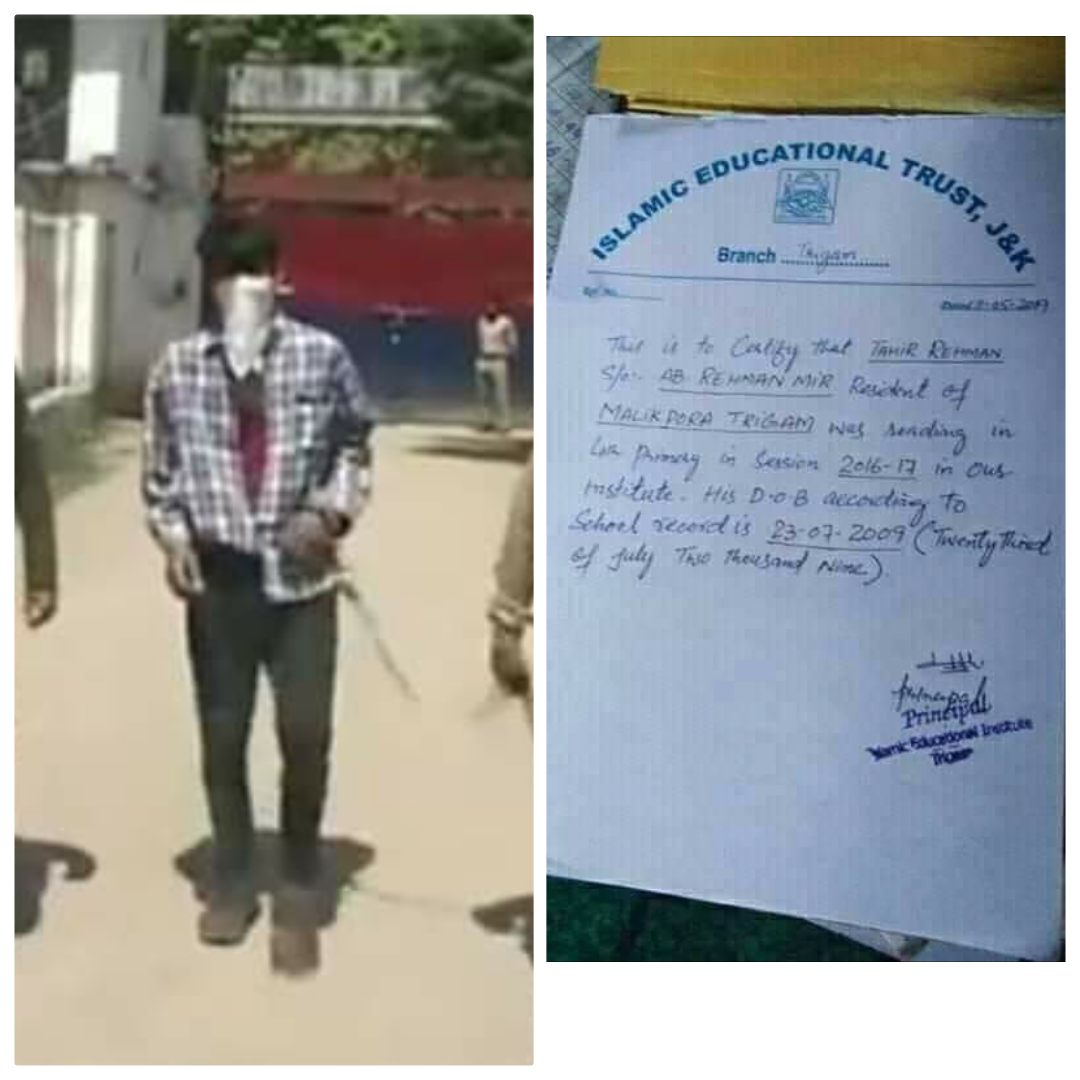 ISLAMIC EDUCATIONAL TRUST, J&K
Branch Trigam
Ref. No.
Dated
This is to Certify that TAHIR REHMAN
S/o:- AB REHMAN MIR Resident of
MALIKPORA TRIGAM was reading in
Primary in Session 2016-17 in our
institute. His D.O.B according to
School record is 23-07-2009 (Twenty third
of July Two thousand Nine).
Principal
Principal
Islamic Educational Institute
Trigam